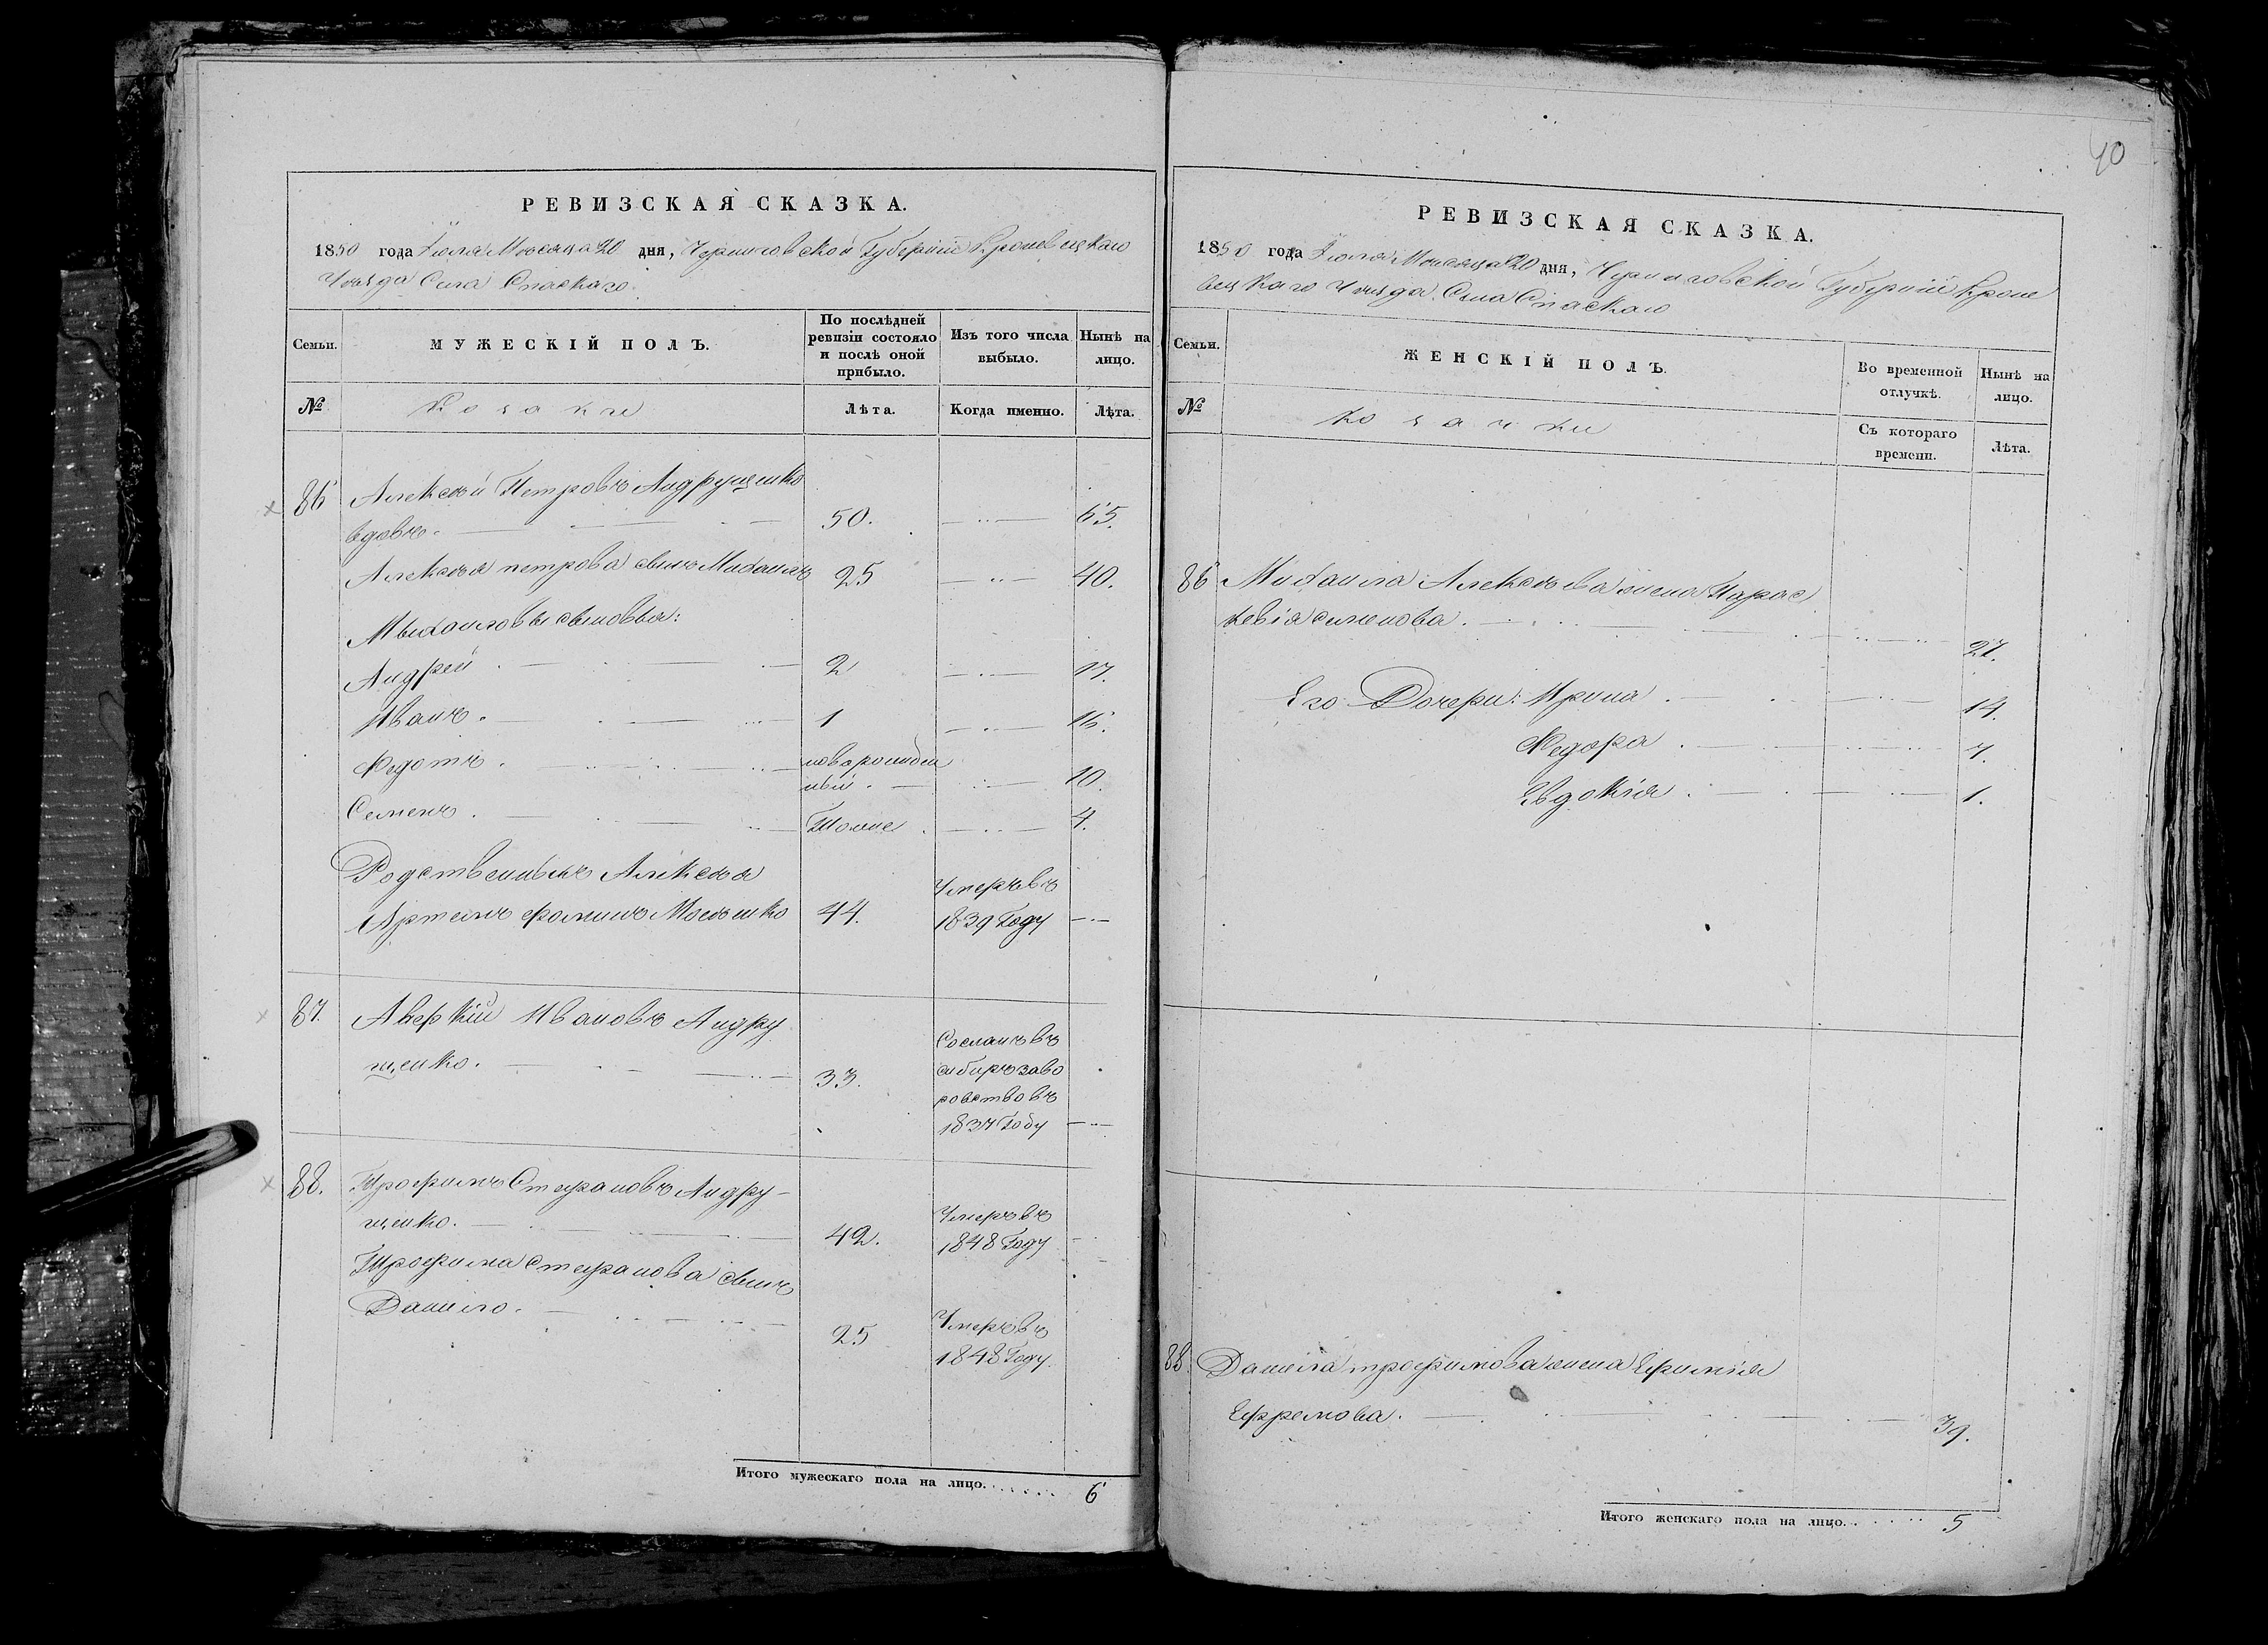 РЕВИЗСКАЯ СКАЗКА.
1850 года Іюля Месяца 20 дня, Черниговской Губерніи Кролевецкаго
Уезда Села Спаскаго
Семьи.
МУЖЕСКІЙ ПОЛЪ.
По послѣдней
ревизіи состояло
и послѣ оной
прибыло.
Изъ того числа
выбыло.
Нынѣ на
лицо.
№
Козаки
Лѣта.
Когда именно.
Лѣта.
86 Алексей Петровъ Андрущенко
вдовъ. 50. 65.
Алексея петрова сынъ Михаилъ 25 40.
Михаиловы сыновья:
Андрей 2 17.
Иванъ. 1 16.
Федотъ. новорожден
ный. 10.
Семенъ. Тоже 4.
Родственникъ Алексея
Умеръ въ
Артемъ фоминъ Мосешко 44. 1839 Году
87. Аверкій Ивановъ Андру
щенко. 33.
Сосланъ въ
сибирь заво
ровство въ
1837 Году
88. Трофимъ Стефановъ Андру-
щенко. 42.
Умеръ въ
1848 Году
Трофима Стефанова сынъ
Данило. 25
Умеръ въ
1848 Году.
Итого мужескаго пола на лицо. 6
40
РЕВИЗСКАЯ СКАЗКА.
1850 года Іюля Месяца 20 дня, Черниговской Губерніи Кроле
вецкаго Уезда Села Спаскаго
Семьи.
ЖЕНСКІЙ ПОЛЪ.
Во временной
отлучкѣ.
Нынѣ на
лицо.
№
Козачки
Съ котораго
времени.
Лѣта.
86 Михаила Алексеева жена Парас
кевія симонова. 27.
Его Дочери: Ирина 14.
Федора 7.
Евдокія 1.
88. Данила трофимова жена Ефимія
Ефремова. 39.
Итого женскаго пола на лицо. 5